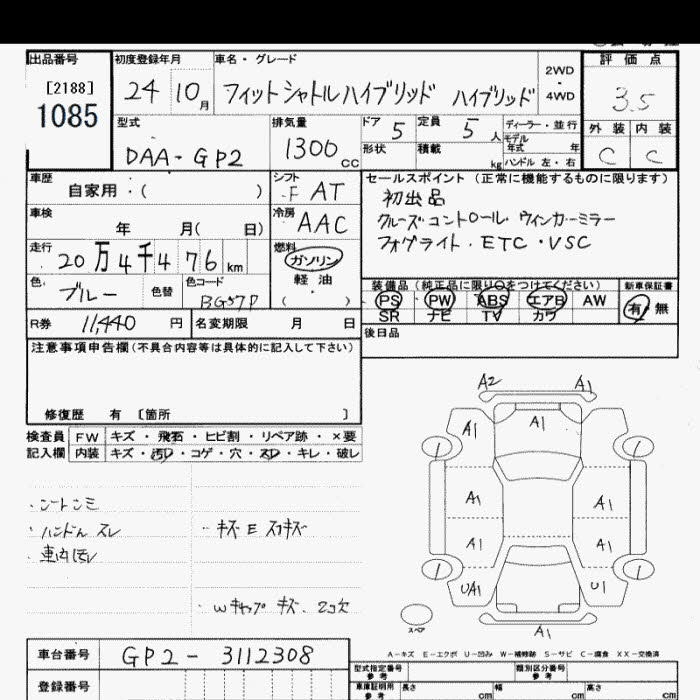 出品番号
[2188]
1085
初度登録年月
24 10月
車名・グレード
フィットシャトルハイブリッド ハイブリッド
2WD
・
4WD
評価点
3.5
外装 内装
C C
型式
DAA-GP2
排気量
1300cc
ドア 5
定員 5人
形状
積載 kg
ディーラー・並行
モデル年式 年
ハンドル 左・右
車歴
自家用・( )
シフト
F AT
車検
年 月( 日)
冷房
AAC
走行
20万4千476km
燃料
ガソリン
軽油
( ・ )
色
ブルー
色替
色コード
BG57P
R券 11,440円
名変期限 月 日
セールスポイント(正常に機能するものに限ります)
初出品
クルーズコントロール・ウィンカーミラー
フォグライト・ETC・VSC
装備品(純正品に限り○をつけてください)
PS PW ABS エアB AW
SR ナビ TV カワ
新車保証書
有・無
後日品
注意事項申告欄(不具合内容等は具体的に記入して下さい)
修復歴 有 [箇所 ]
検査員記入欄
FW キズ・飛石・ヒビ割・リペア跡・×要
内装 キズ・汚レ・コゲ・穴・スレ・キレ・破レ
・シートシミ
・ハンドル スレ
・キズ E スリキズ
・Wキャップ キズ.
A2 A1
A1 A1
A1 A1
A1 A1
UA1 U1
A1
スペア
A-キズ E-エクボ U-凹み W-補修跡 S-サビ C-腐食 XX-交換済
車台番号 GP2-3112308
登録番号
型式指定番号
参考
類別区分番号
参考
車庫証明用
参考
長さ cm
幅 cm
高さ cm